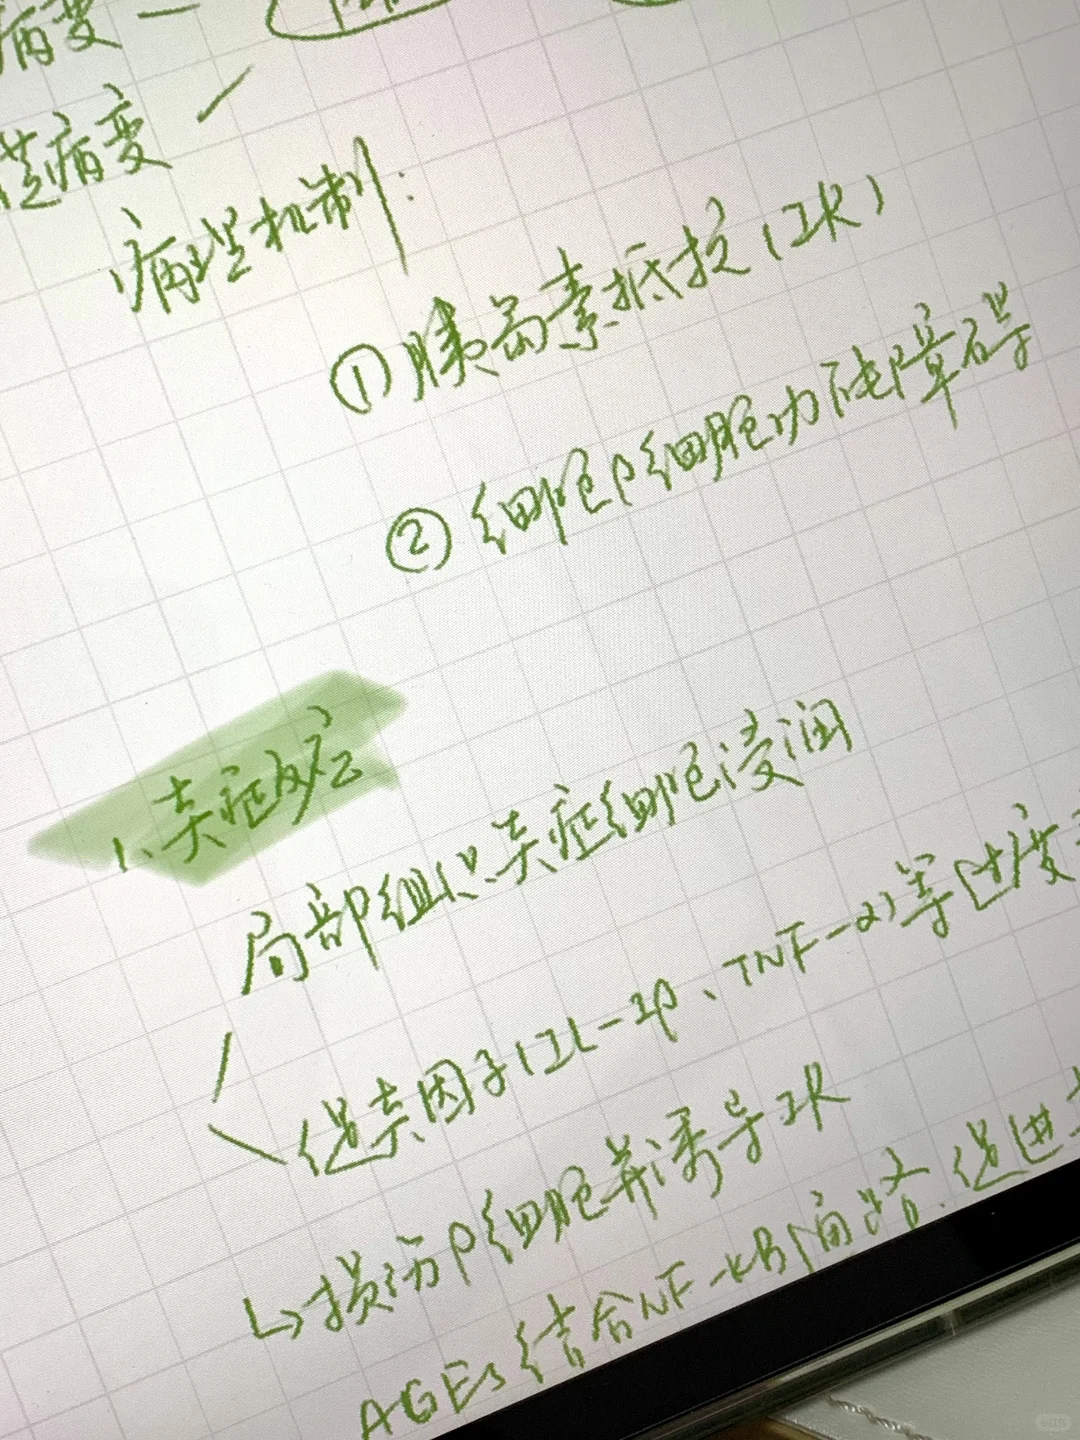 病变 —
茎病变
病理机制:
① 胰岛素抵抗(IR)
② 细胞β细胞功能障碍
1、炎症反应
局部组织炎症细胞浸润
促炎因子(IL-1β、TNF-α)等过度
↳损伤β细胞并诱导IR
AGEs结合NF-κB通路.促进